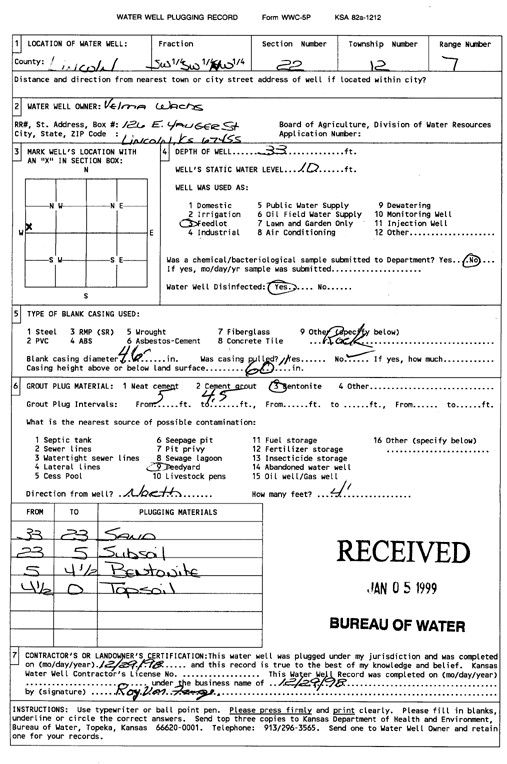 WATER WELL PLUGGING RECORD Form WWC-5P KSA 82a-1212
1 LOCATION OF WATER WELL: Fraction Section Number Township Number Range Number
County: Lincoln SW 1/4 SW 1/4 NW 1/4 22 12 7
Distance and direction from nearest town or city street address of well if located within city?
2 WATER WELL OWNER: Velma Wacks
RR#, St. Address, Box #: 126 E. Yauger St Board of Agriculture, Division of Water Resources
City, State, ZIP Code : Lincoln, KS 67455 Application Number:
3 MARK WELL'S LOCATION WITH AN "X" IN SECTION BOX:
N
N W N E
X
W E
S W S E
S
4 DEPTH OF WELL.....33.....ft.
WELL'S STATIC WATER LEVEL...10....ft.
WELL WAS USED AS:
1 Domestic 5 Public Water Supply 9 Dewatering
2 Irrigation 6 Oil Field Water Supply 10 Monitoring Well
3 Feedlot 7 Lawn and Garden Only 11 Injection Well
4 Industrial 8 Air Conditioning 12 Other................
Was a chemical/bacteriological sample submitted to Department? Yes...No...
If yes, mo/day/yr sample was submitted....................
Water Well Disinfected: Yes.... No.....
5 TYPE OF BLANK CASING USED:
1 Steel 3 RMP (SR) 5 Wrought 7 Fiberglass 9 Other (specify below)
2 PVC 4 ABS 6 Asbestos-Cement 8 Concrete Tile Rock
Blank casing diameter 46 in. Was casing pulled? Yes...... No..✓.. If yes, how much........
Casing height above or below land surface.......60....in.
6 GROUT PLUG MATERIAL: 1 Neat cement 2 Cement grout 3 Bentonite 4 Other...............
Grout Plug Intervals: From 5 ft. to 4.5 ft., From......ft. to .....ft., From...... to......ft.
What is the nearest source of possible contamination:
1 Septic tank 6 Seepage pit 11 Fuel storage 16 Other (specify below)
2 Sewer lines 7 Pit privy 12 Fertilizer storage
3 Watertight sewer lines 8 Sewage lagoon 13 Insecticide storage
4 Lateral lines 9 Feedyard 14 Abandoned water well
5 Cess Pool 10 Livestock pens 15 Oil well/Gas well
Direction from well? North....... How many feet? ...4'
FROM TO PLUGGING MATERIALS
33 23 Sand
23 5 Subsoil
5 4 1/2 Bentonite
4 1/2 0 Topsoil
RECEIVED
JAN 05 1999
BUREAU OF WATER
7 CONTRACTOR'S OR LANDOWNER'S CERTIFICATION: This water well was plugged under my jurisdiction and was completed
on (mo/day/year) 12/29/98..... and this record is true to the best of my knowledge and belief. Kansas
Water Well Contractor's License No. ................. This Water Well Record was completed on (mo/day/year)
.................... under the business name of 12/29/98
by (signature) ..... Roy Van
INSTRUCTIONS: Use typewriter or ball point pen. Please press firmly and print clearly. Please fill in blanks,
underline or circle the correct answers. Send top three copies to Kansas Department of Health and Environment,
Bureau of Water, Topeka, Kansas 66620-0001. Telephone: 913/296-3565. Send one to Water Well Owner and retain
one for your records.